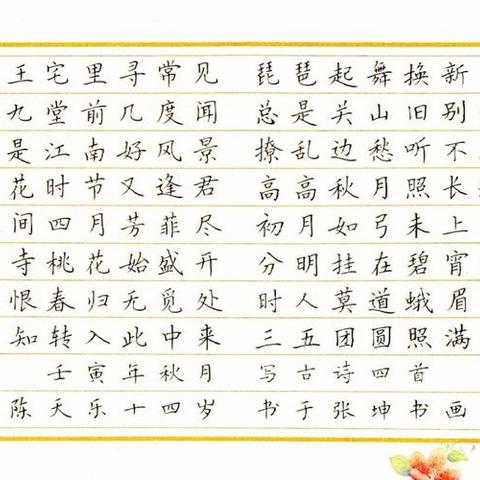 王宅里寻常见 琵琶起舞换新
九堂前几度闻 总是关山旧别
是江南好风景 撩乱边愁听不
花时节又逢君 高高秋月照长
间四月芳菲尽 初月如弓未上
寺桃花始盛开 分明挂在碧宵
恨春归无觅处 时人莫道蛾眉
知转入此中来 三五团圆照满
壬寅年秋月 写古诗四首
陈天乐十四岁 书于张坤书画